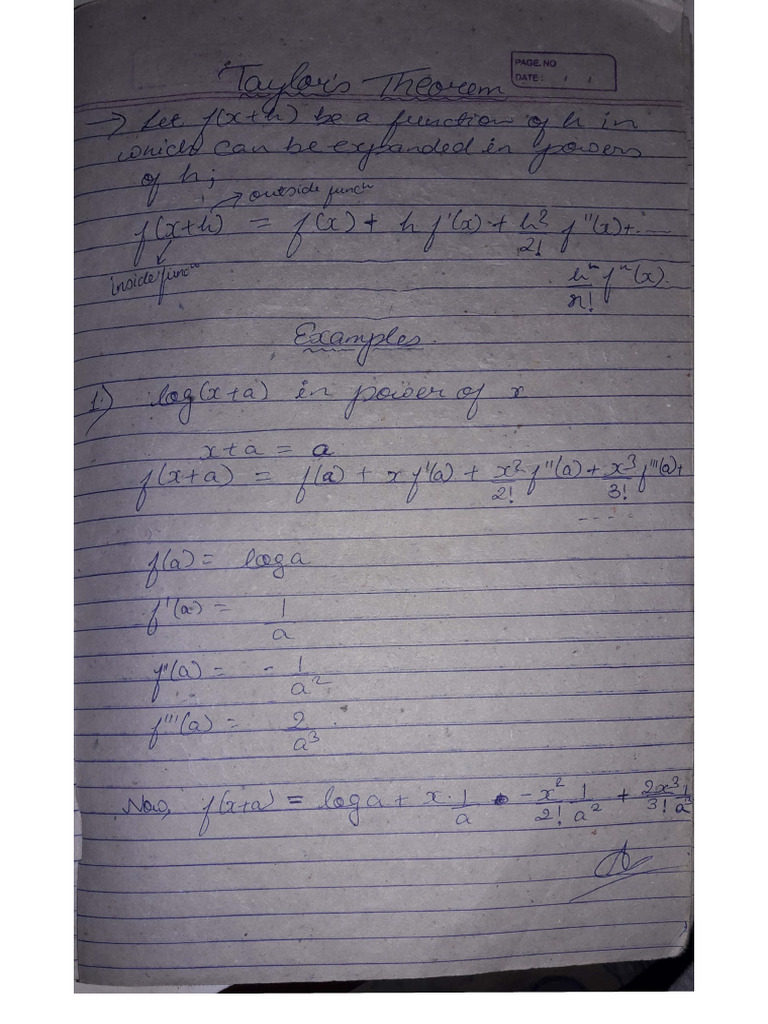 PAGE. NO
DATE: / /
Taylor's Theorem
→ Let f(x+h) be a function of h in
which can be expanded in powers
of h;
→ outside funcn
f(x+h) = f(x) + h f'(x) + h²/2! f''(x)+....
inside funcn
hⁿ/n! fⁿ(x).
Examples.
1.) log(x+a) in power of x
x+a = a
f(x+a) = f(a) + x f'(a) + x²/2! f''(a) + x³/3! f'''(a)+
----
f(a) = log a
f'(a) = 1/a
f''(a) = - 1/a²
f'''(a) = 2/a³
Now, f(x+a) = log a + x. 1/a - x²/2! 1/a² + 2x³/3! 1/a³